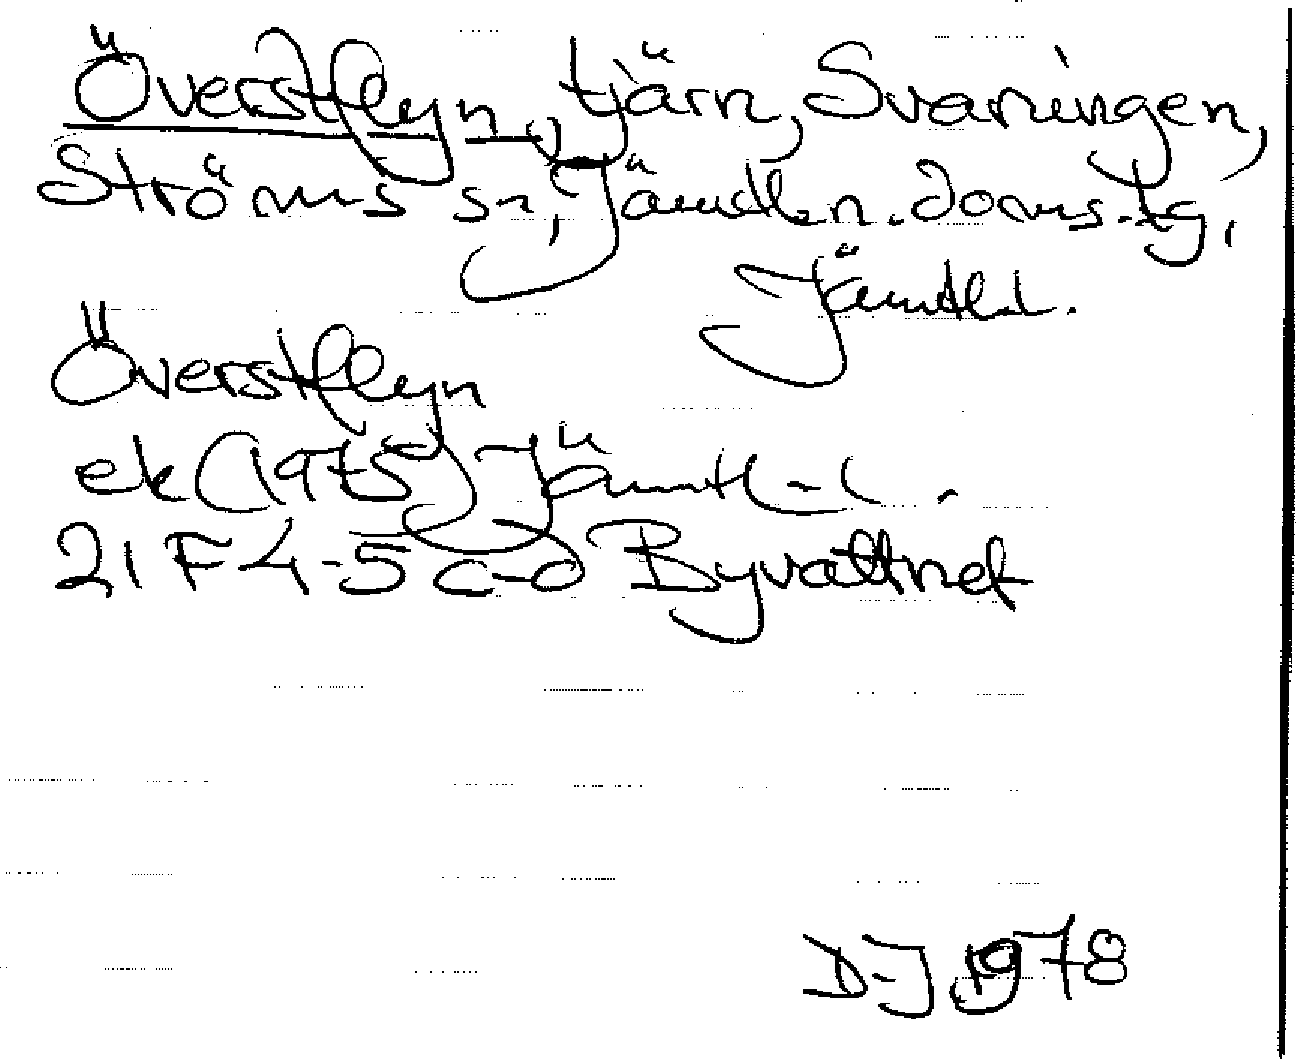 Överstflyn, tjärn, Svaningen,
Ströms sn, Jämtl.n. doms.tg,
Jämtl.l.
Överstflyn
ek (1975) Jämtl-l.
21 F 4-5 c-d Byvattnet
D-J 1978